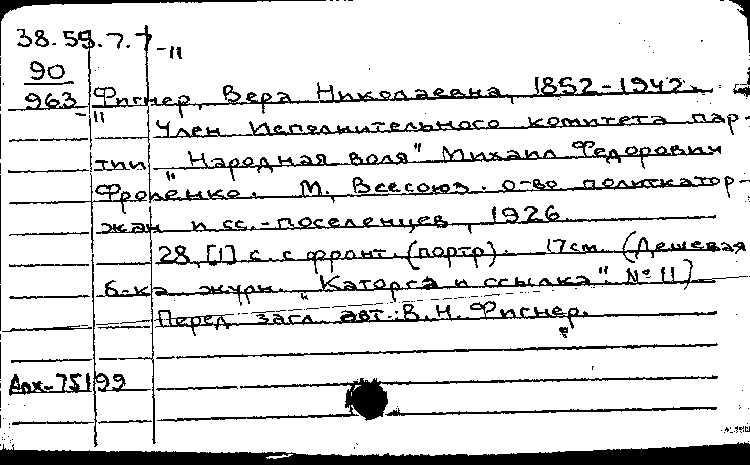 38.59.7.7-11
90
963-11
Фигнер, Вера Николаевна, 1852-1942.
Член Исполнительного комитета пар-
тии "Народная воля" Михаил Федорович
Фроленко. М., Всесоюз. о-во политкатор-
жан и сс.-поселенцев, 1926.
28, [1] с. с фронт. (портр). 17см. (Дешевая
б-ка журн. "Каторга и ссылка". № 11)
Перед загл. авт.: В.Н. Фигнер.
Арх-75199